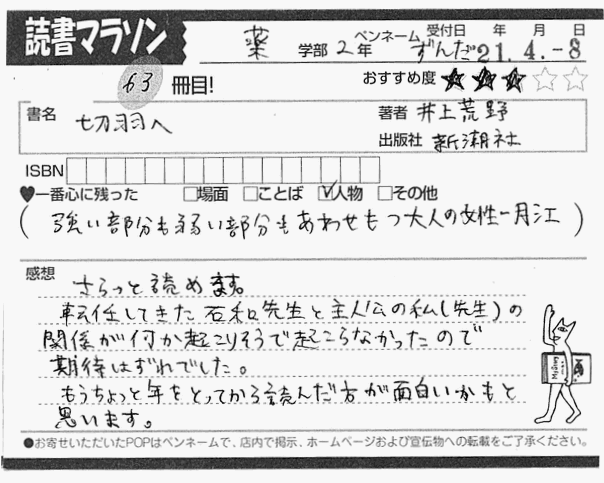 読書マラソン
薬 学部 2年 ペンネーム ずんだ 受付日 年 月 日 21.4.-8
63 冊目! おすすめ度 ★★★☆☆
書名 切羽へ 著者 井上荒野
出版社 新潮社
ISBN
♥一番心に残った □場面 □ことば ☑人物 □その他
( 強い部分も弱い部分もあわせもつ大人の女性ー月江 )
感想 さらっと読めます。
転任してきた石和先生と主人公の私(先生)の
関係が何か起こりそうで起こらなかったので
期待はずれでした。
もうちょっと年をとってから読んだ方が面白いかもと
思います。
●お寄せいただいたPOPはペンネームで、店内で掲示、ホームページおよび宣伝物への転載をご了承ください。